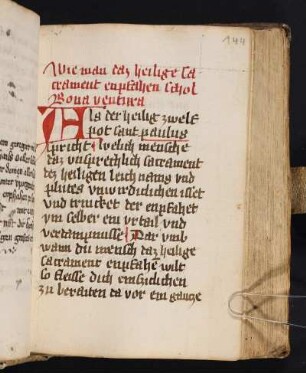 144
Wie man daz heilige sa-
crament enpfahen schol
Bona ventura
Als der heilig zwelf
pot sant paulus
spricht welich mensche
daz vnsprechlich sacrament
dez heiligen leich nams vnd
plutes vnwirdiclichen isset
vnd trincket der enpfahet
ym selber ein vrtail vnd
verdampnusse Dar vmb
wann du mensch daz heilige
sacrament enpfahe wilt
so fleisse dich enczichen
zu beraiten da vor ein gancze